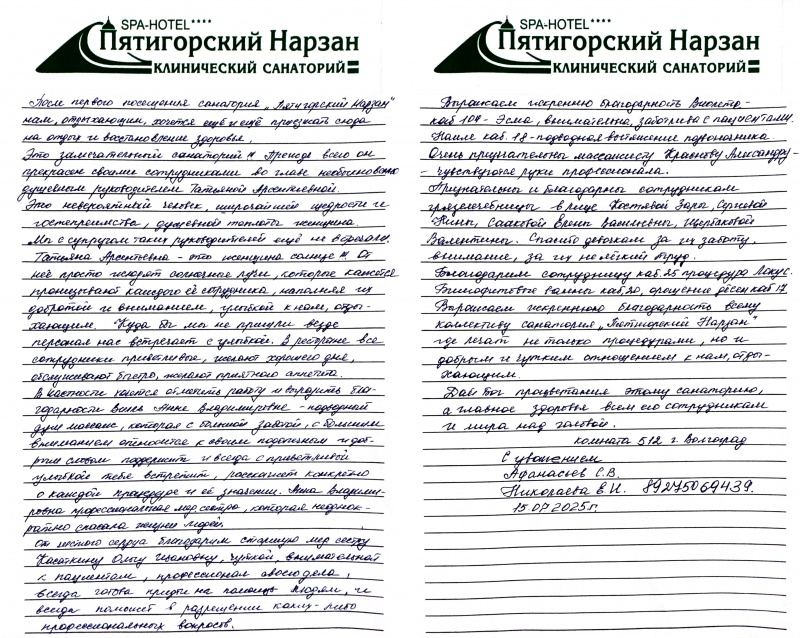 SPA-HOTEL ****
Пятигорский Нарзан
КЛИНИЧЕСКИЙ САНАТОРИЙ
После первого посещения санатория „Пятигорский Нарзан"
нам, отдыхающим, хочется ещё и ещё приезжать сюда
на отдых и восстановление здоровья.
Это замечательный санаторий!! Прежде всего он
прекрасен своими сотрудниками во главе необыкновенно
душевном руководителем Татьяной Арсентьевной.
Это невероятный человек, широчайшей щедрости и
гостеприимства, душевной теплоты женщина.
Мы с супругом таких руководителей ещё не встречали.
Татьяна Арсентьевна - это женщина солнце!! От
неё просто исходят солнечные лучи, которые кажется
пронизывают каждого её сотрудника, наполняя их
добротой и вниманием, улыбкой к нам, отды-
хающим. Куда бы мы не пришли везде
персонал нас встречает с улыбкой. В ресторане все
сотрудники приветливые, желают хорошего дня,
обслуживают быстро, желают приятного аппетита.
В частности хочется отметить работу и выразить бла-
годарность Анне Владимировне - подводный
душ массаж, которая с большой заботой, с большим
вниманием относится к своим подопечным и доб-
рым словом поддержит и всегда с приветливой
улыбкой тебя встретит, расскажет конкретно
о каждой процедуре и её значении. Анна Владими-
ровна профессиональная медсестра, которая неоднок-
ратно спасала жизни людей.
От чистого сердца благодарим старшую мед сестру
Касаткину Ольгу Ивановну, чуткой, внимательной
к пациентам, профессионал своего дела,
всегда готова придти на помощь людям, и
всегда поможет в разрешении каких-либо
профессиональных вопросов.
SPA-HOTEL ****
Пятигорский Нарзан
КЛИНИЧЕСКИЙ САНАТОРИЙ
Выражаем искреннюю благодарность
каб 104 - Эма, внимательна, заботлива с пациентами.
каб. 18 - подводная вытяжение позвоночника.
Очень признательны массажисту Александру -
чувствуются руки профессионала.
Признательны и благодарны сотрудникам
грязелечебницы в лице Костявой Зары, Сергиевой
Нины, Сааковой Елены Васильевны, Щербаковой
Валентины. Спасибо девочкам за их заботу,
внимание, за их нелёгкий труд.
Благодарим сотрудницу каб. 25 процедура Локус.
Бишофитовые ванны каб 20, орошение дёсен каб 17.
Выражаем искреннюю благодарность всему
коллективу санатория „Пятигорский Нарзан"
где лечат не только процедурами, но и
добрым и чутким отношением к нам, отды-
хающим.
Дай Бог процветания этому санаторию,
а главное здоровья всем его сотрудникам
и мира над головой.
комната 512 г. Волгоград
С уважением
Афанасьев С.В.
Николаева В.И. 89275069439.
15.07.2025г.